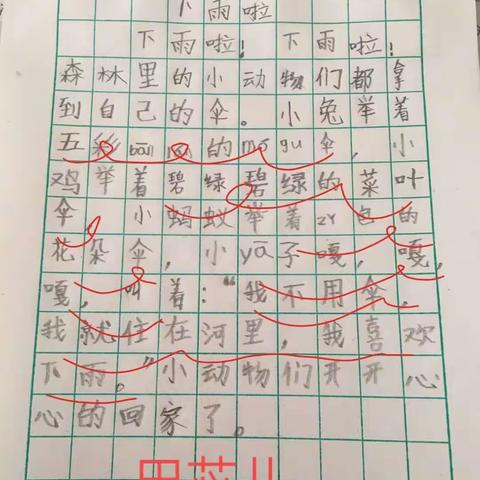 下雨啦
下雨啦！下雨啦！
森林里的小动物们都拿
到自己的伞。小兔举着
五彩bān lán的mó gu伞，小
鸡举着碧绿碧绿的菜叶
伞，小蚂蚁举着zǐ色的
花朵伞，小yā子嘎，嘎，
嘎，叫着：“我不用伞，
我就住在河里，我喜欢
下雨。”小动物们开开心
心的回家了。